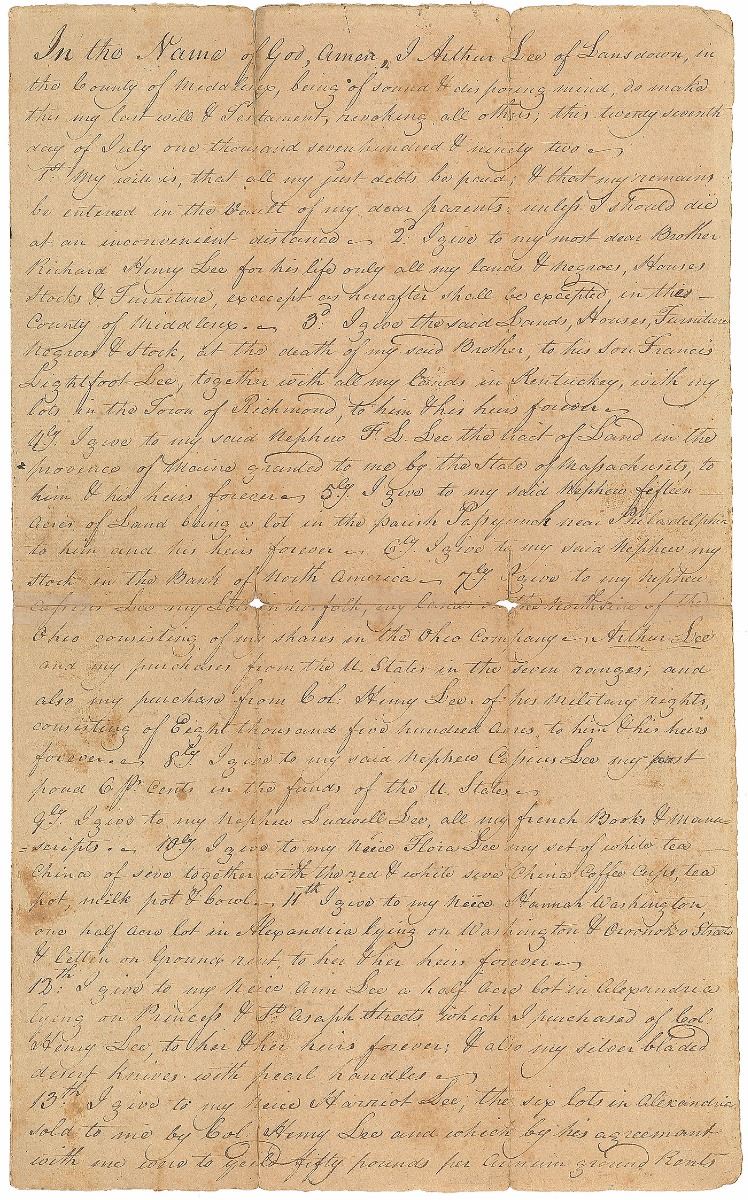 In the Name of God, Amen, I Arthur Lee of Lansdown, in
the County of Middlesex, being of sound & disposing mind, do make
this my last will & Testament, revoking all others; this twenty seventh
day of July one thousand seven hundred & ninety two
1st. My will is, that all my just debts be paid; & that my remains
be entered in the Vault of my dear parents, unless I should die
at an inconvenient distance. 2d. I give to my most dear Brother
Richard Henry Lee for his life only all my lands & Negroes, Houses
Stocks & Furniture, excecept as hereafter shall be excepted, in this
County of Middlesex. 3d. I give the said Lands, Houses, Furniture
Negroes & Stock, at the death of my said Brother, to his Son Francis
Lightfoot Lee, together with all my Lands in Kentuckey, with my
lots in the Town of Richmond, to him & his heirs forever
4ly. I give to my said Nephew F. L. Lee the tract of Land in the
province of Maine granted to me by the State of Massachusits, to
him & his heirs forever 5ly. I give to my said Nephew fifteen
Acres of Land being a lot in the parish Passyunck near Philadelphia
to him and his heirs forever 6ly. I give to my said Nephew my
Stock in the Bank of North America 7ly. I give to my Nephew
Cassius Lee my Lots in Norfolk, my lands on the North side of the
Ohio consisting of my shares in the Ohio Company Arthur Lee
and my purchases from the U. States in the seven ranges; and
also my purchase from Col: Henry Lee of his Military rights,
consisting of Eight thousand five hundred Acres, to him & his heirs
forever. 8ly. I give to my said Nephew Cassius Lee my
6 pr. Cents in the funds of the U. States
9ly. I give to my Nephew Ludwell Lee, all my french Books & Manu-
=scripts. 10ly. I give to my Neice Flora Lee my set of white tea
China of seve together with the red & white seve China Coffee Cups, tea
pot, milk pot & bowl. 11th I give to my Neice Hannah Washington,
one half Acre lot in Alexandria lying on Washington & Oroonoko Streets
& letten on Ground rent to her & her heirs forever
12th. I give to my Neice Ann Lee a half Acre lot in Alexandria
lying on Princess & St. Asaph Streets which I purchased of Col:
Henry Lee, to her & her heirs forever; & also my silver bladed
desert knives with pearl handles
13th I give to my Neice Harriot Lee, the six lots in Alexandria
sold to me by Col. Henry Lee and which by his agreemant
with me were to yeild fifty pounds per Annum ground Rents